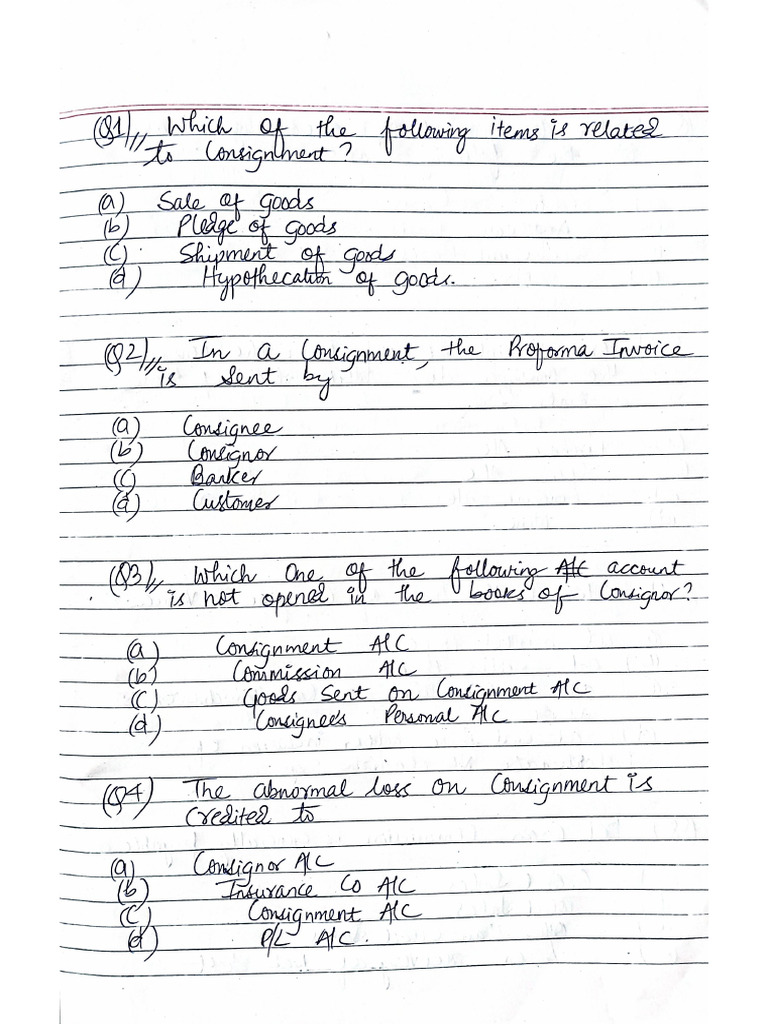 (Q1)// Which of the following items is related
to Consignment?
(a) Sale of goods
(b) Pledge of goods
(c) Shipment of goods
(d) Hypothecation of goods.
(Q2)// In a Consignment, the Proforma Invoice
is sent by
(a) Consignee
(b) Consignor
(c) Banker
(d) Customer
(Q3)// Which One of the following A/C account
is not opened in the books of Consignor?
(a) Consignment A/C
(b) Commission A/C
(c) Goods Sent on Consignment A/C
(d) Consignee's Personal A/C
(Q4) The abnormal loss on Consignment is
Credited to
(a) Consignor A/C
(b) Insurance Co A/C
(c) Consignment A/C
(d) P/L A/C.